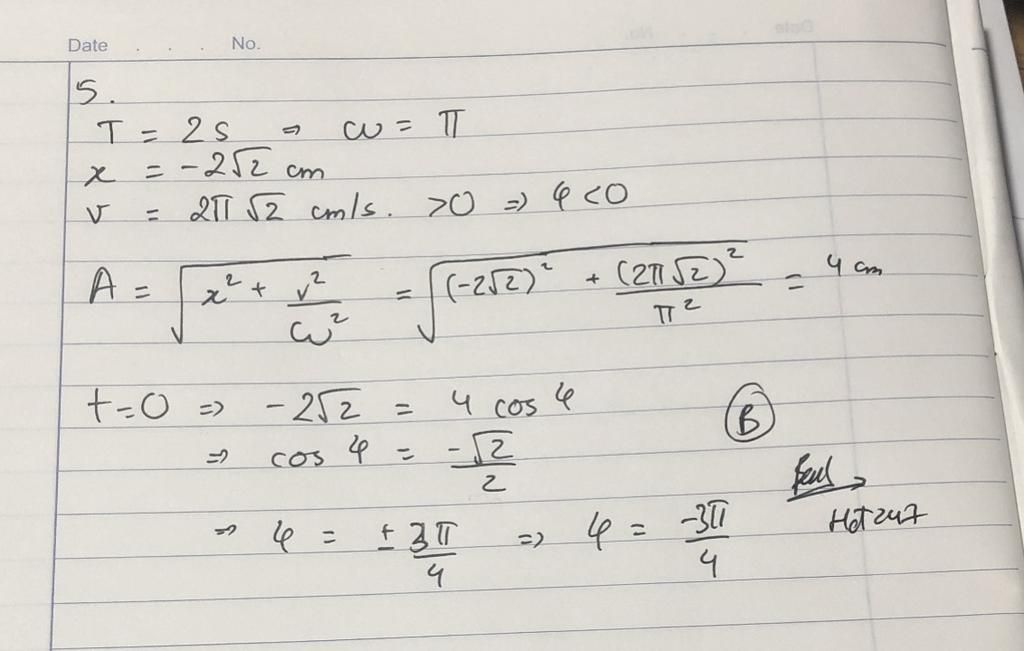 Date . . . No.
5.
T = 2s ⇒ ω = π
x = -2√2 cm
v = 2π√2 cm/s. >0 ⇒ φ<0
A = √(x² + v²/ω²) = √((-2√2)² + (2π√2)²/π²) = 4 cm
t=0 ⇒ -2√2 = 4 cos φ
B
⇒ cos φ = -√2/2
⇒ φ = ±3π/4 ⇒ φ = -3π/4
Hot247